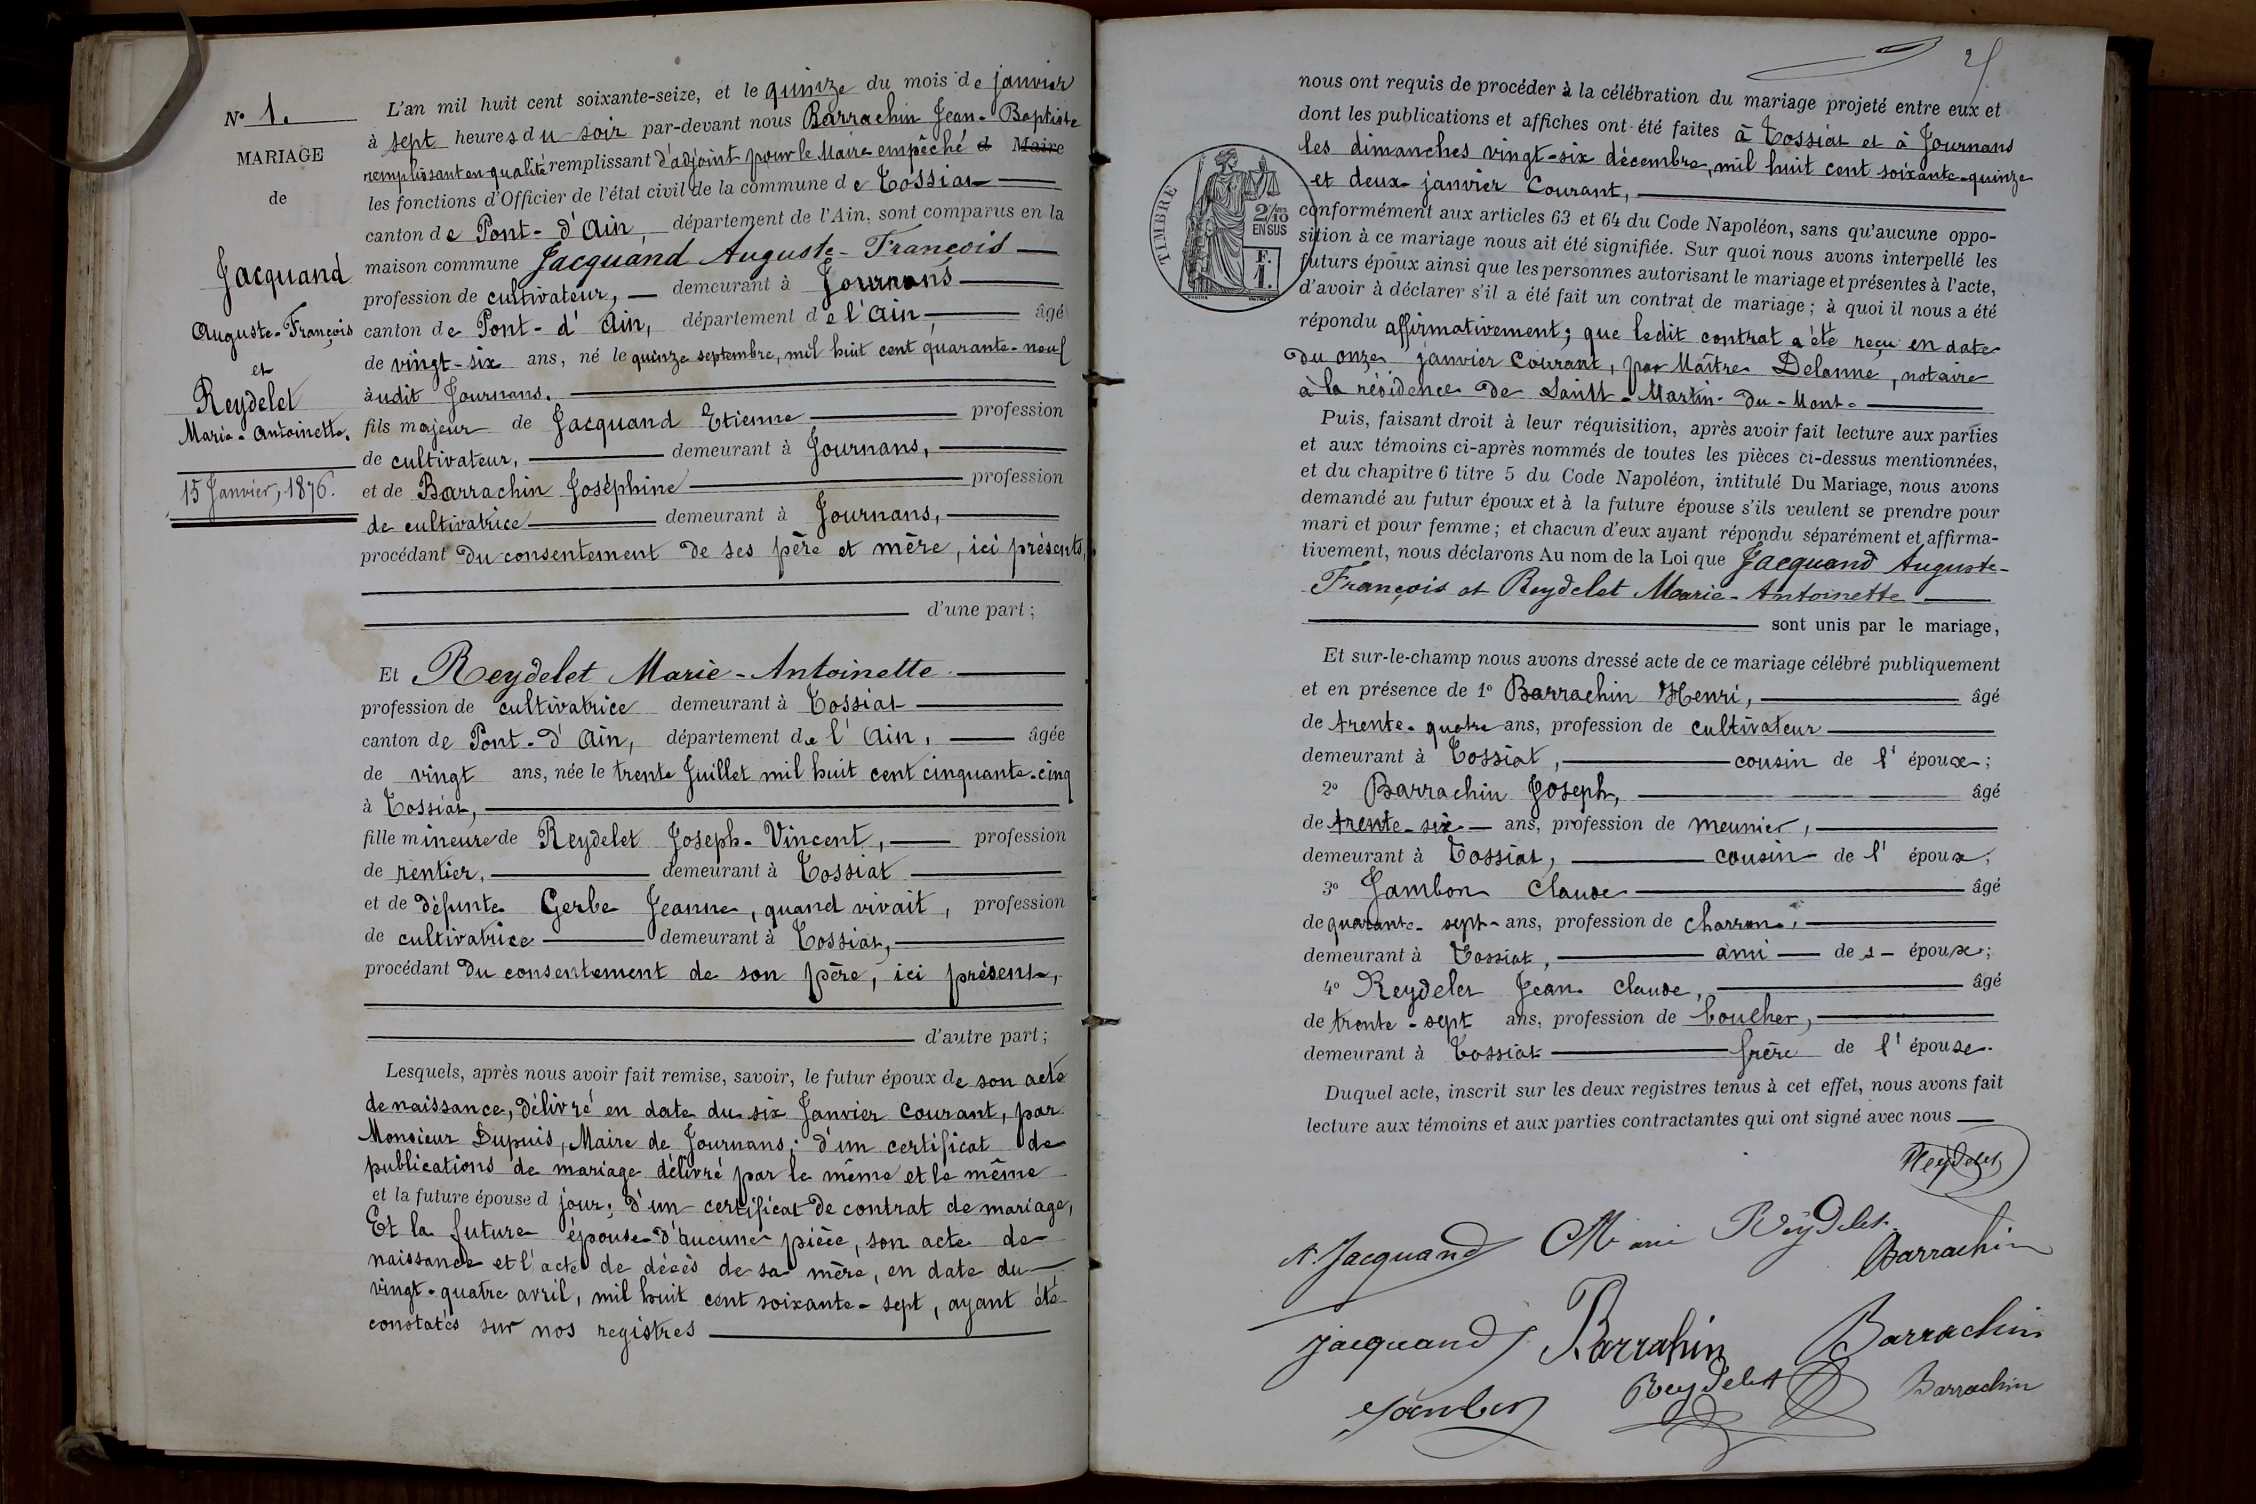 N° 1.
MARIAGE
de
Jacquand
Auguste-François
et
Reydelet
Marie-Antoinette.
15 Janvier, 1876.
L'an mil huit cent soixante-seize, et le quinze du mois de janvier
à sept heures du soir par-devant nous Barrachin Jean-Baptiste
remplissant en qualité remplissant d'adjoint pour le Maire empêché d Maire
les fonctions d'Officier de l'état civil de la commune de Tossiat
canton de Pont-d'Ain, département de l'Ain, sont comparus en la
maison commune Jacquand Auguste-François
profession de cultivateur, demeurant à Journans
canton de Pont-d'Ain, département de l'Ain, âgé
de vingt-six ans, né le quinze septembre, mil huit cent quarante-neuf
àudit Journans.
fils majeur de Jacquand Etienne profession
de cultivateur, demeurant à Journans,
et de Barrachin Joséphine profession
de cultivatrice demeurant à Journans,
procédant du consentement de ses père et mère, ici présents,
d'une part ;
Et Reydelet Marie-Antoinette
profession de cultivatrice demeurant à Tossiat
canton de Pont-d'Ain, département de l'Ain, âgée
de vingt ans, née le trente Juillet mil huit cent cinquante-cinq
à Tossiat,
fille mineure de Reydelet Joseph-Vincent, profession
de rentier, demeurant à Tossiat
et de défunte Gerbe Jeanne, quand vivait, profession
de cultivatrice demeurant à Tossiat,
procédant du consentement de son père, ici présent,
d'autre part ;
Lesquels, après nous avoir fait remise, savoir, le futur époux de son acte
de naissance, délivré en date du six Janvier courant, par
Monsieur Dupuis, Maire de Journans; d'un certificat de
publications de mariage délivré par le même et le même
et la future épouse d jour; d'un certificat de contrat de mariage,
Et la future épouse d'aucune pièce, son acte de
naissance et l'acte de décès de sa mère, en date du
vingt-quatre avril, mil huit cent soixante-sept, ayant été
constatés sur nos registres
nous ont requis de procéder à la célébration du mariage projeté entre eux et
dont les publications et affiches ont été faites à Tossiat et à Journans
les dimanches vingt-six décembre, mil huit cent soixante-quinze
et deux janvier courant,
TIMBRE
2/10 EN SUS
F. 1.
conformément aux articles 63 et 64 du Code Napoléon, sans qu'aucune oppo-
sition à ce mariage nous ait été signifiée. Sur quoi nous avons interpellé les
futurs époux ainsi que les personnes autorisant le mariage et présentes à l'acte,
d'avoir à déclarer s'il a été fait un contrat de mariage ; à quoi il nous a été
répondu affirmativement; que ledit contrat a été reçu en date
du onze janvier courant, par Maître Delanne, notaire
à la résidence de Saint-Martin-du-Mont.
Puis, faisant droit à leur réquisition, après avoir fait lecture aux parties
et aux témoins ci-après nommés de toutes les pièces ci-dessus mentionnées,
et du chapitre 6 titre 5 du Code Napoléon, intitulé Du Mariage, nous avons
demandé au futur époux et à la future épouse s'ils veulent se prendre pour
mari et pour femme ; et chacun d'eux ayant répondu séparément et affirma-
tivement, nous déclarons Au nom de la Loi que Jacquand Auguste-
François et Reydelet Marie-Antoinette
sont unis par le mariage,
Et sur-le-champ nous avons dressé acte de ce mariage célébré publiquement
et en présence de 1° Barrachin Henri, âgé
de trente-quatre ans, profession de cultivateur
demeurant à Tossiat, cousin de l'époux ;
2° Barrachin Joseph, âgé
de trente-six ans, profession de meunier,
demeurant à Tossiat, cousin de l'époux ;
3° Jambon Claude âgé
de quarante-sept ans, profession de charron,
demeurant à Tossiat, ami des époux ;
4° Reydelet Jean Claude, âgé
de trente-sept ans, profession de boucher,
demeurant à Tossiat frère de l'épouse.
Duquel acte, inscrit sur les deux registres tenus à cet effet, nous avons fait
lecture aux témoins et aux parties contractantes qui ont signé avec nous
Reydelet
A. Jacquand Marie Reydelet
Barrachin
Jacquand Barrahin Barrachin
Jambon Reydelet Barrachin